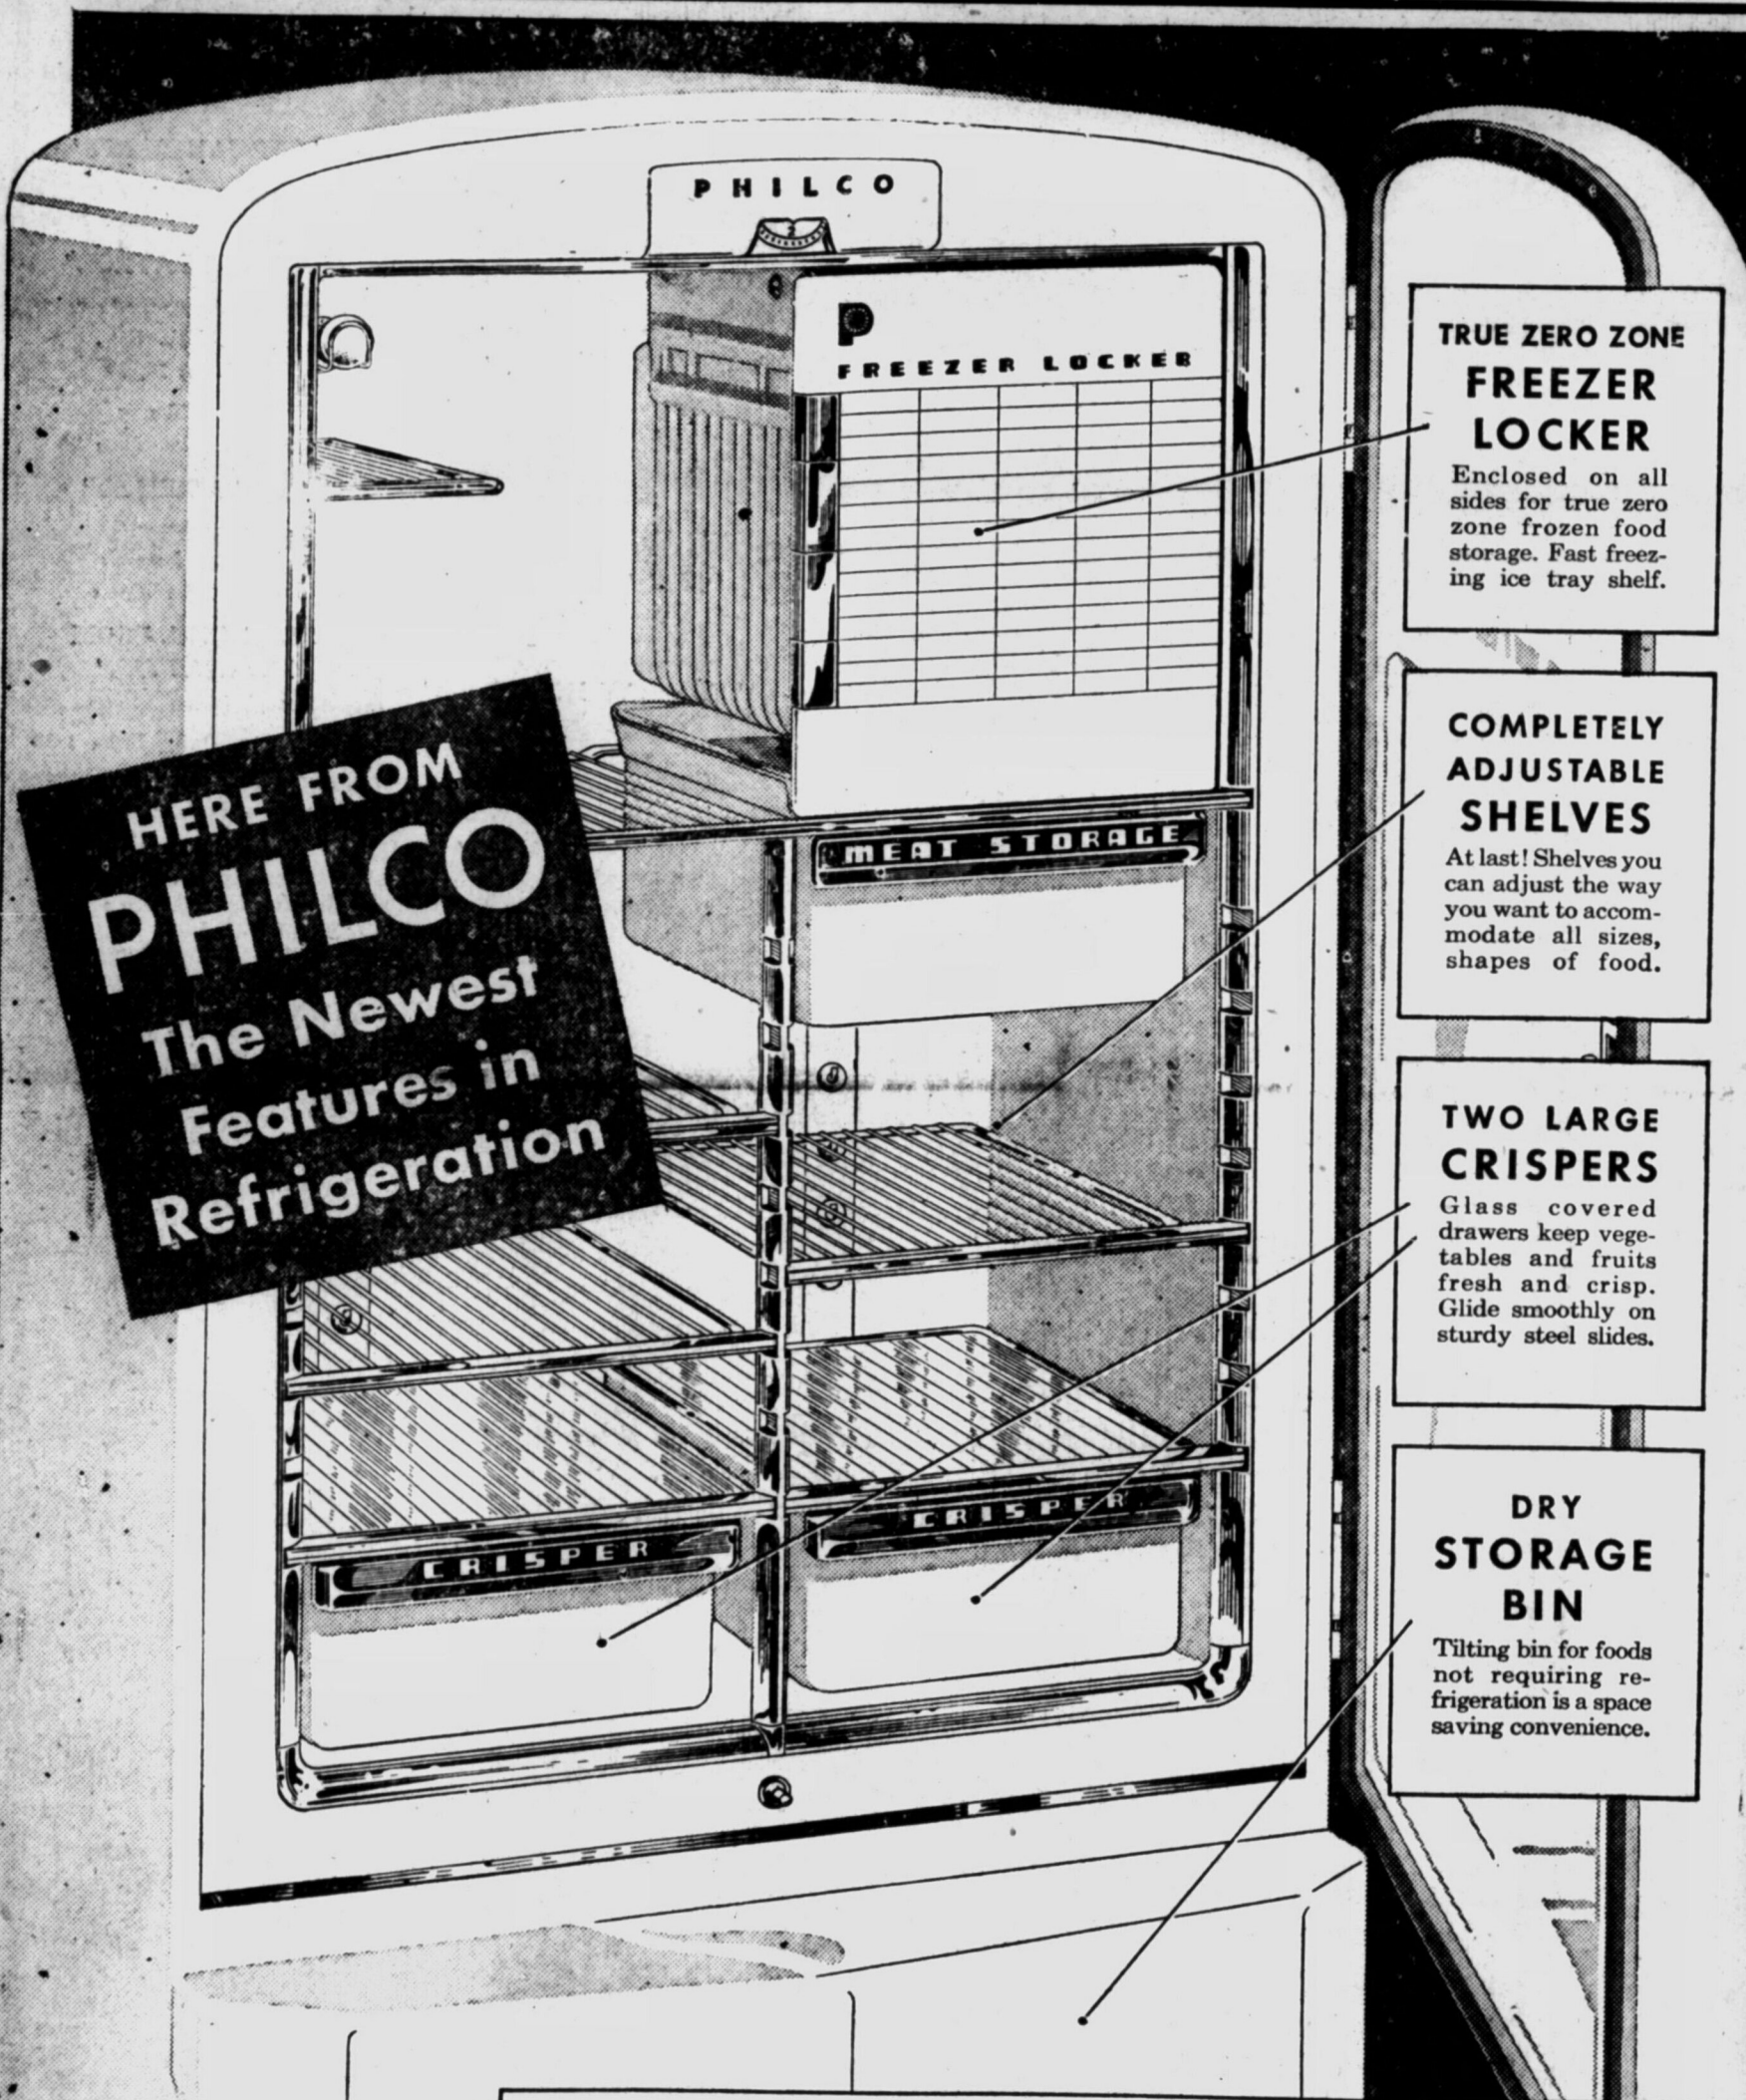 PHILCO
2
P
FREEZER LOCKER
MEAT STORAGE
CRISPER
CRISPER
HERE FROM
PHILCO
The Newest
Features in
Refrigeration
TRUE ZERO ZONE
FREEZER
LOCKER
Enclosed on all
sides for true zero
zone frozen food
storage. Fast freez-
ing ice tray shelf.
COMPLETELY
ADJUSTABLE
SHELVES
At last! Shelves you
can adjust the way
you want to accom-
modate all sizes,
shapes of food.
TWO LARGE
CRISPERS
Glass covered
drawers keep vege-
tables and fruits
fresh and crisp.
Glide smoothly on
sturdy steel slides.
DRY
STORAGE
BIN
Tilting bin for foods
not requiring re-
frigeration is a space
saving convenience.